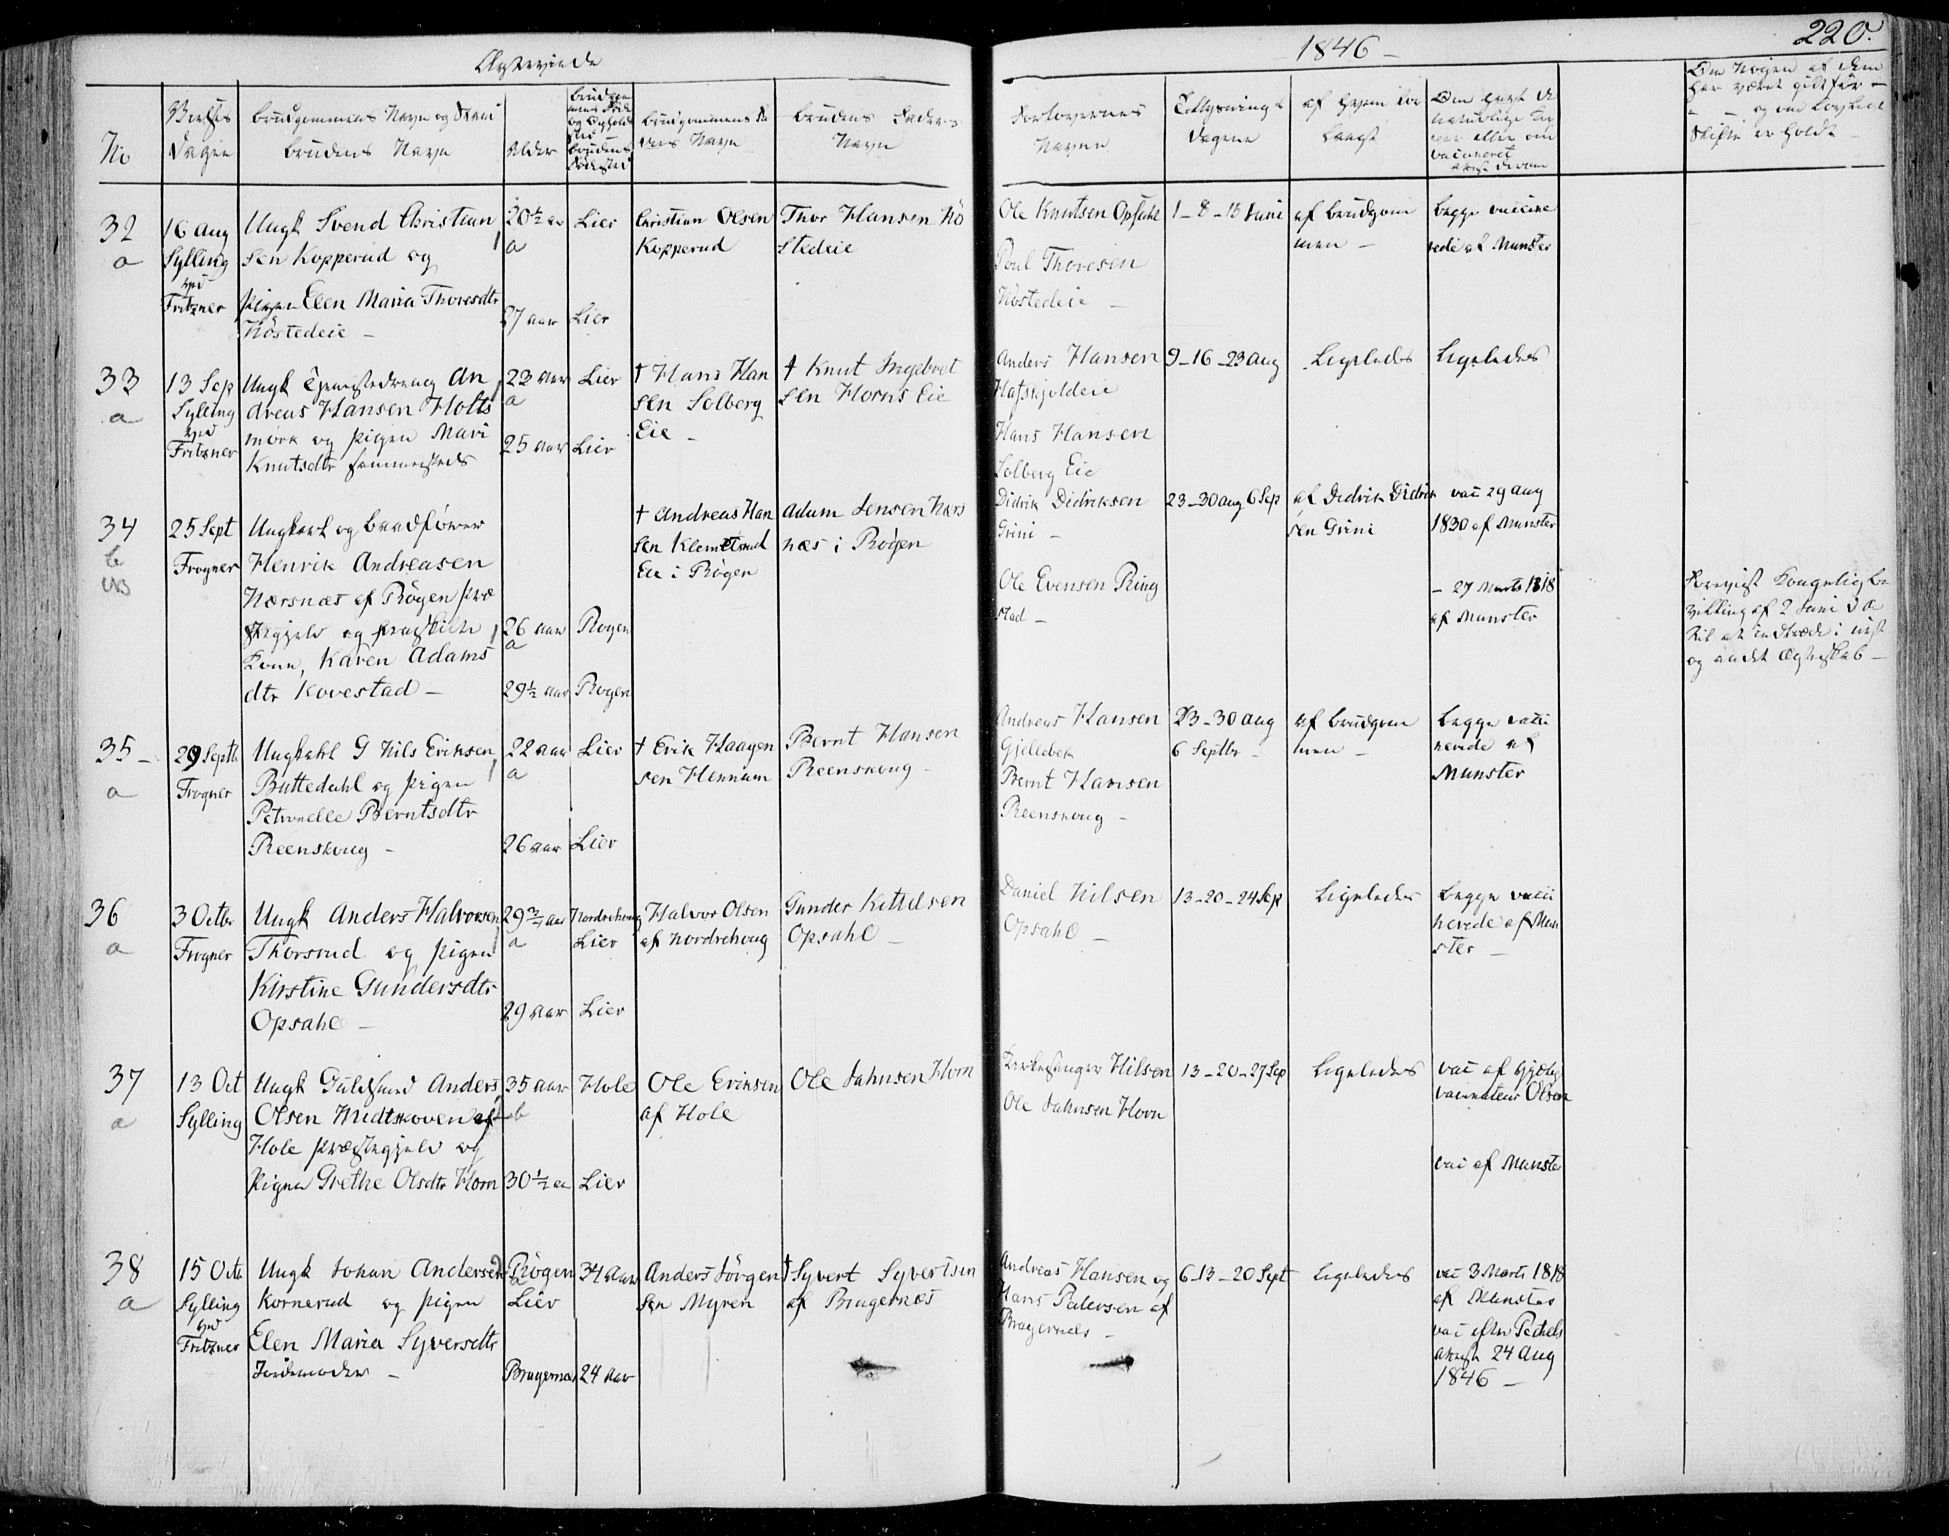 Ægteviede
1846 –
220.
No
Vielses Dagen
Brudgommens Navn og Stand
Brudens Navn
Alder
Brudgommens Fader Navn
Brudens Faders Navn
Forlovernes Navne
Tillysnings Dagene
af hvem forlangt
Om Nogen af dem
har været gift før –
og om lovligt
Skifte er holdt –
32
a
16 Aug
Sylling
ved
Fritzner
Ungk Svend Christian
sen Kopperud og
Pigen Elen Maria Thoresdtr
Høstedeie –
20½ aar
a
27 aar
Lier
Lier
Christian Olsen
Kopperud
Thor Hansen Hö
stedeie
Ole Knutsen Opsahl
Poul Thoresen
Höstedeie –
1 – 8 – 15 Juni
af Brudgom
men –
Begge vaccine
rede af Munster
33
a
13 Sep
Sylling
ved
Fritzner
Ungk Tjenestedreng An
dreas Hansen Holts
mörk og Pigen Mari
Knutsdtr sammesteds
23 aar
a
25 aar
Lier
Lier
† Hans Han
sen Solberg
Eie –
† Knut Ingebret
sen Horns Eie
Anders Hansen
Hafskjoldeie
Hans Hansen
Solberg Eie
9 – 16 – 23 Aug
Ligeledes
Ligeledes
34
b
25 Sept
Frogner
Ungkarl og Baadförer
Henrik Andreasen
Nærsnæs af Rögen Præ
stegjeld og fraskilte
Kone, Karen Adams
dtr Kovestad –
26 aar
a
29½ aar
Rögen
Rogen
† Andreas Han
sen Klemetsrud
Eie i Rögen
Adam Jensen Nærs
næs i Rögen
Didrik Didriksen
Grini –
Ole Evensen Ring
stad –
23 – 30 Aug 6 Sep
af Didrik Didrik
sen Grini
vac 29 Aug
1830 af Munster
– 27 Marts 1818
af Munster
Forevist Kongelig Be
villing af 2 Juni d A
til at indtræde i nyt
og andet Ægteskab –
35 –
a
29 Septb
Frogner
Ungkahl G Nils Eriksen
Buttedahl og Pigen
Petronelle Berntsdtr
Reenskoug –
22 aar
a
26 aar
Lier
Lier
† Erik Haagen
sen Hennum
Bernt Hansen
Reenskoug –
Andreas Hansen
Gjellebek
Bernt Hansen
Reenskoug –
23 – 30 Aug
6 Septbr –
af Brudgom
men –
Begge vacci
nerede af
Munster
36
a
3 Octbr
Frogner
Ungk Anders Halvorsen
Thorsrud og Pigen
Kirstine Gundersdtr
Opsahl –
29¾ aar
a
29 aar
Nordrehoug
Lier
Lier
Halvor Olsen
af Nordrehoug
Gunder Kittelsen
Opsahl –
Daniel Nilsen
Opsahl –
13 – 20 – 24 Sep
Ligeledes
Begge vacci
nerede af Mun
ster –
37
a
13 Oct
Sylling
Ungk Anders
Olsen Midtskoven af
Hole Præstegjeld og
Pigen Grethe Olsdtr Horn
35 aar
b
30½ aa
Hole
Lier
Ole Eriksen
af Hole
Ole Jahnsen Horn
Kirkesanger Nilsen
Ole Jahnsen Horn
13 – 20 – 27 Sep
Ligeledes
vac af
vaccinateur Olsen
vac af Munster
38
a
15 Octb
Sylling
ved
Fritzner
Ungk Johan Andersen
Kornerud og Pigen
Elen Maria Syversdtr
Jordemoder –
Rögen
Lier
Bragernæs
34 aar
24 aar
Anders Jörgen
sen Myren
† Syvert Syvertsen
af Bragernæs
Andreas Hansen og
Hans Pedersen af
Bragernæs –
6 – 13 – 20 Sept
Ligeledes
vac 3 Marts 1818
af Munster
vac efter Pechels
Attest 24 Aug
1846 –